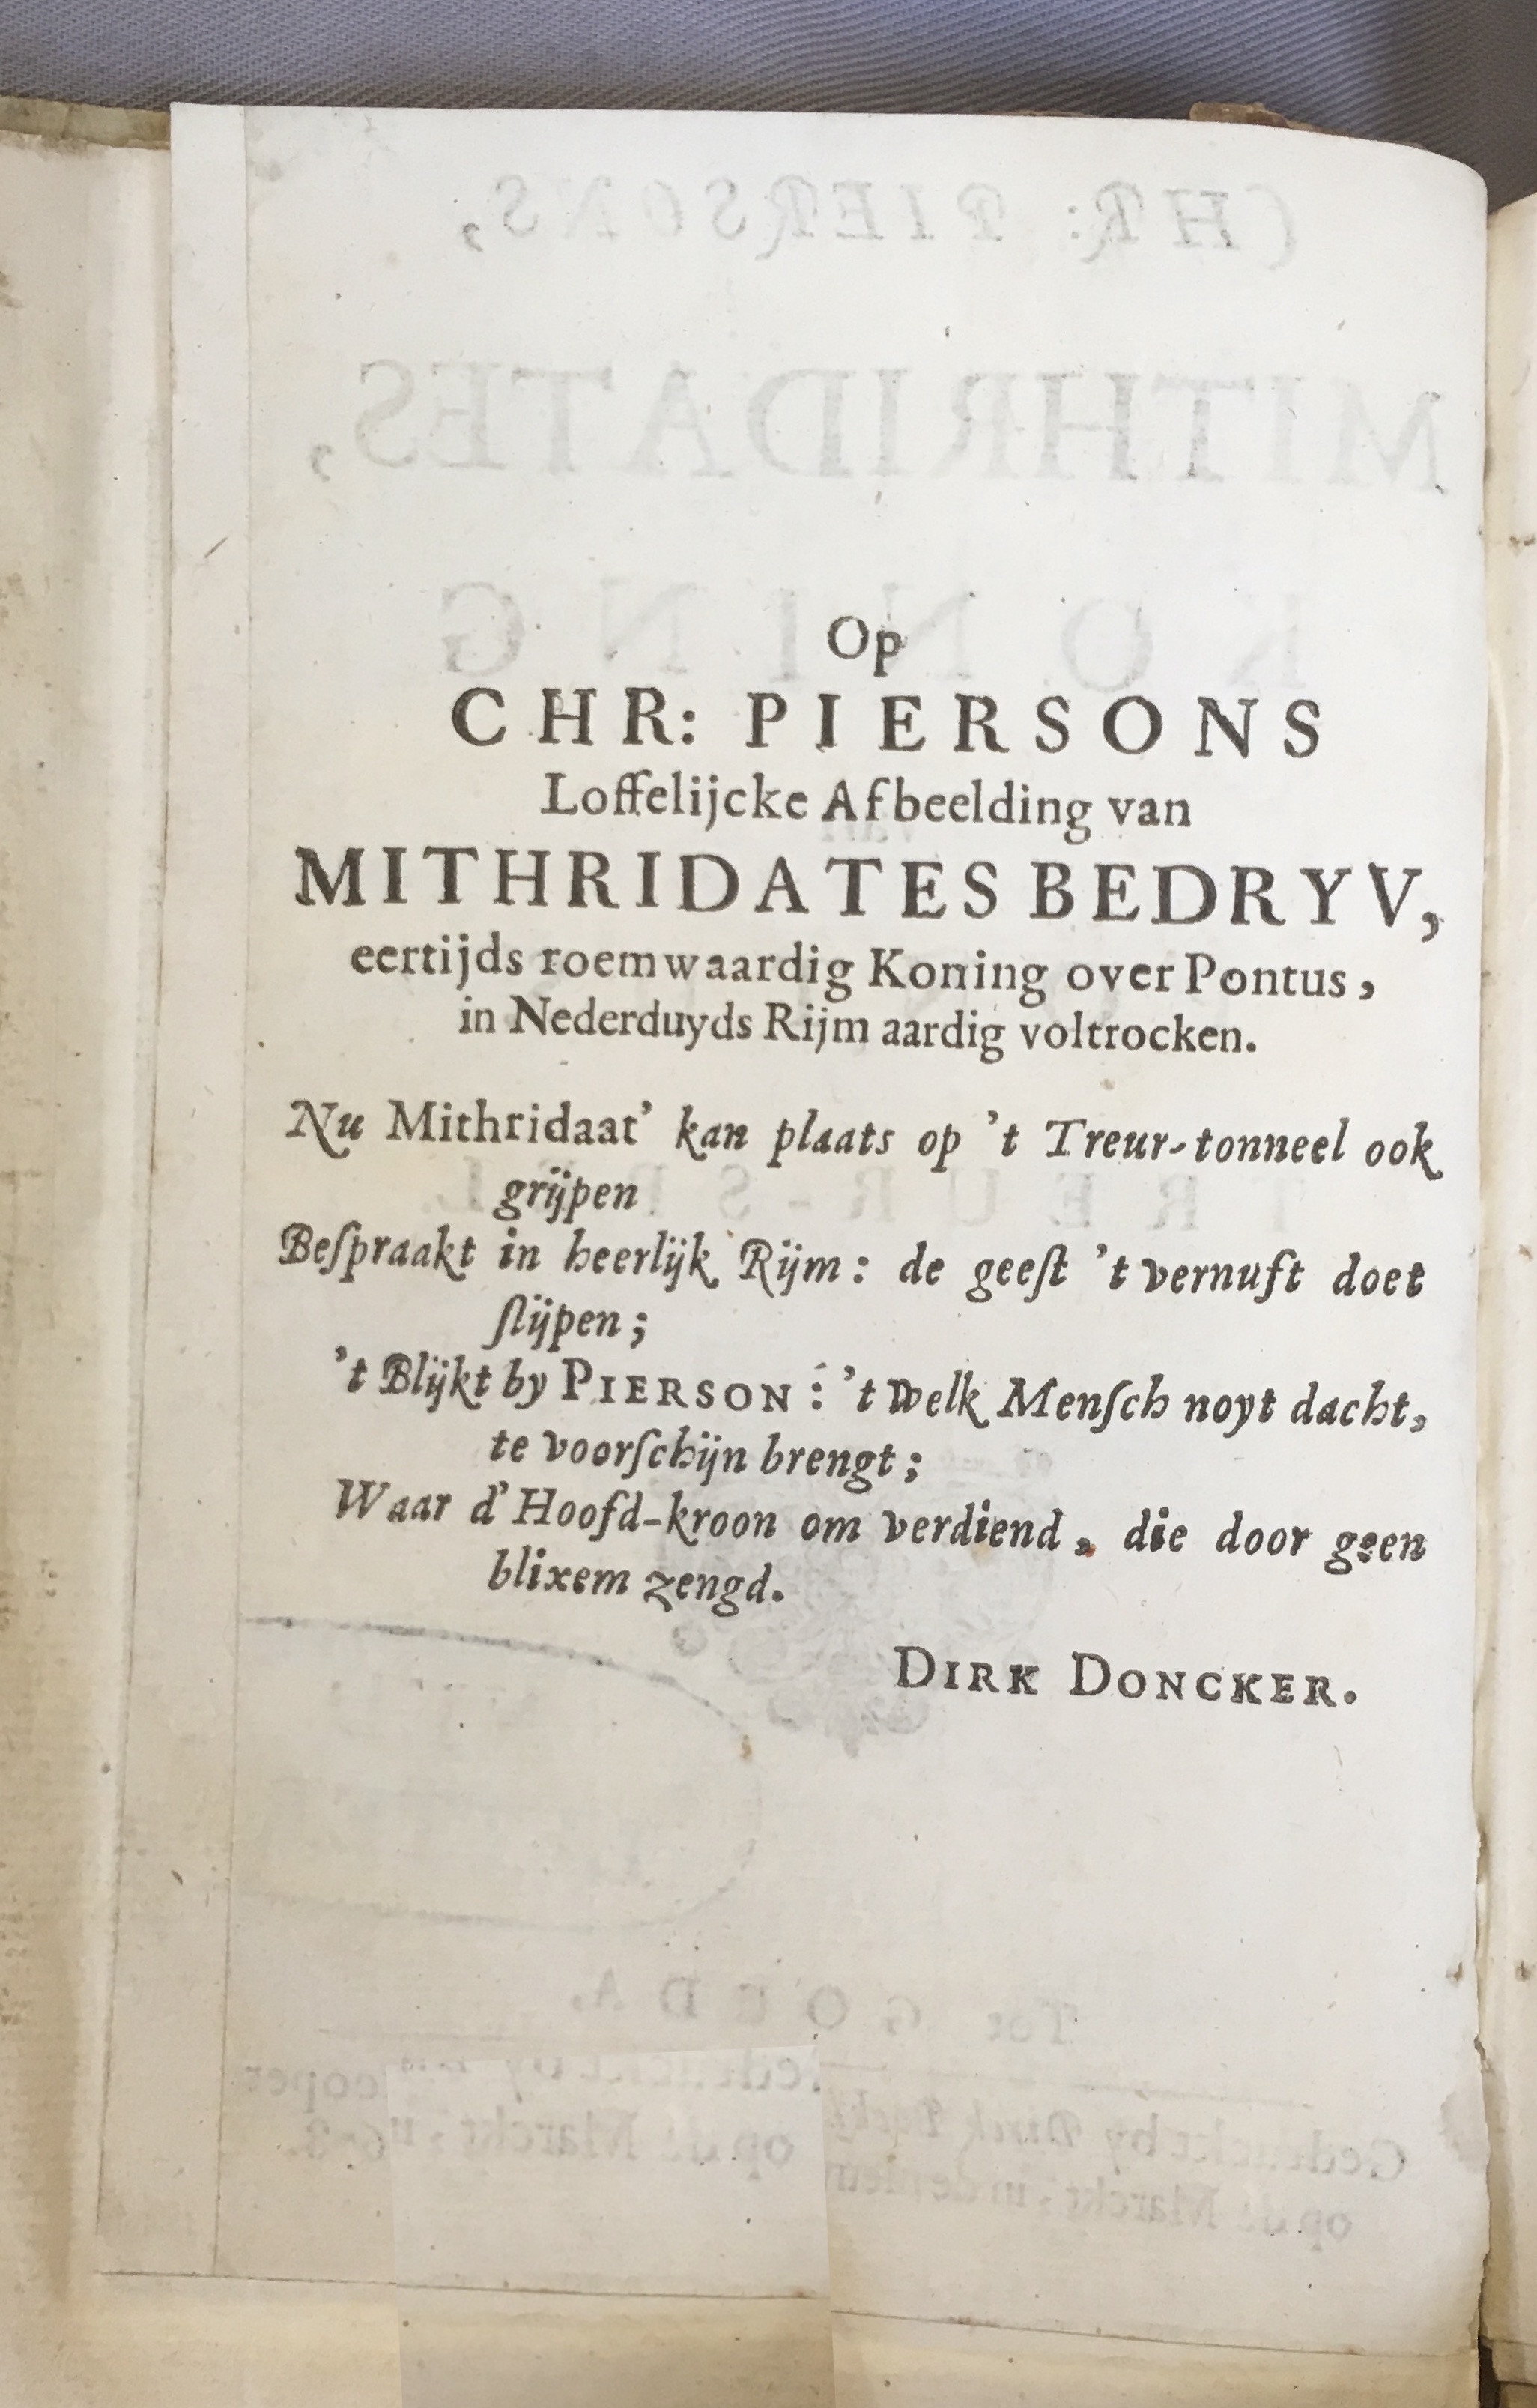 Op
CHR: PIERSONS
Loffelijcke Afbeelding van
MITHRIDATES BEDRYV,
eertijds roemwaardig Koning over Pontus,
in Nederduyds Rijm aardig voltrocken.
Nu Mithridaat' kan plaats op 't Treur-tonneel ook
grijpen
Beſpraakt in heerlijk Rijm: de geeſt 't vernuft doet
ſlijpen;
't Blijkt by PIERSON: 't welk Menſch noyt dacht,
te voorſchijn brengt;
Waar d'Hoofd-kroon om verdiend, die door geen
blixem zengd.
DIRK DONCKER.